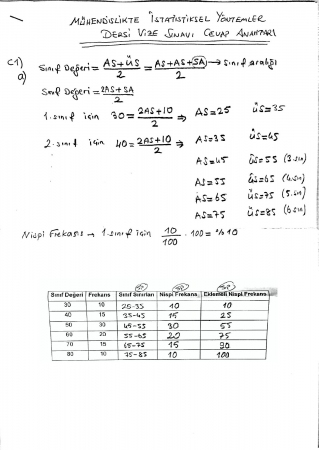 MÜHENDİSLİKTE İSTATİSTİKSEL YÖNTEMLER
DERSİ VİZE SINAVI CEVAP ANAHTARI
C1)
a) Sınıf Değeri = AS+ÜS / 2 = AS+AS+SA / 2 → sınıf aralığı
Sınıf Değeri = 2AS+SA / 2
1. sınıf için 30 = 2AS+10 / 2 ⇒ AS=25 ÜS=35
2. sınıf için 40 = 2AS+10 / 2 ⇒ AS=35 ÜS=45
AS=45 ÜS=55 (3.sın)
AS=55 ÜS=65 (4.sın)
AS=65 ÜS=75 (5.sın)
AS=75 ÜS=85 (6.sın)
Nispi Frekans → 1.sınıf için 10 / 100 . 100 = %10
Sınıf Değeri Frekans Sınıf Sınırları Nispi Frekans Eklemeli Nispi Frekans
30 10 25-35 10 10
40 15 35-45 15 25
50 30 45-55 30 55
60 20 55-65 20 75
70 15 65-75 15 90
80 10 75-85 10 100